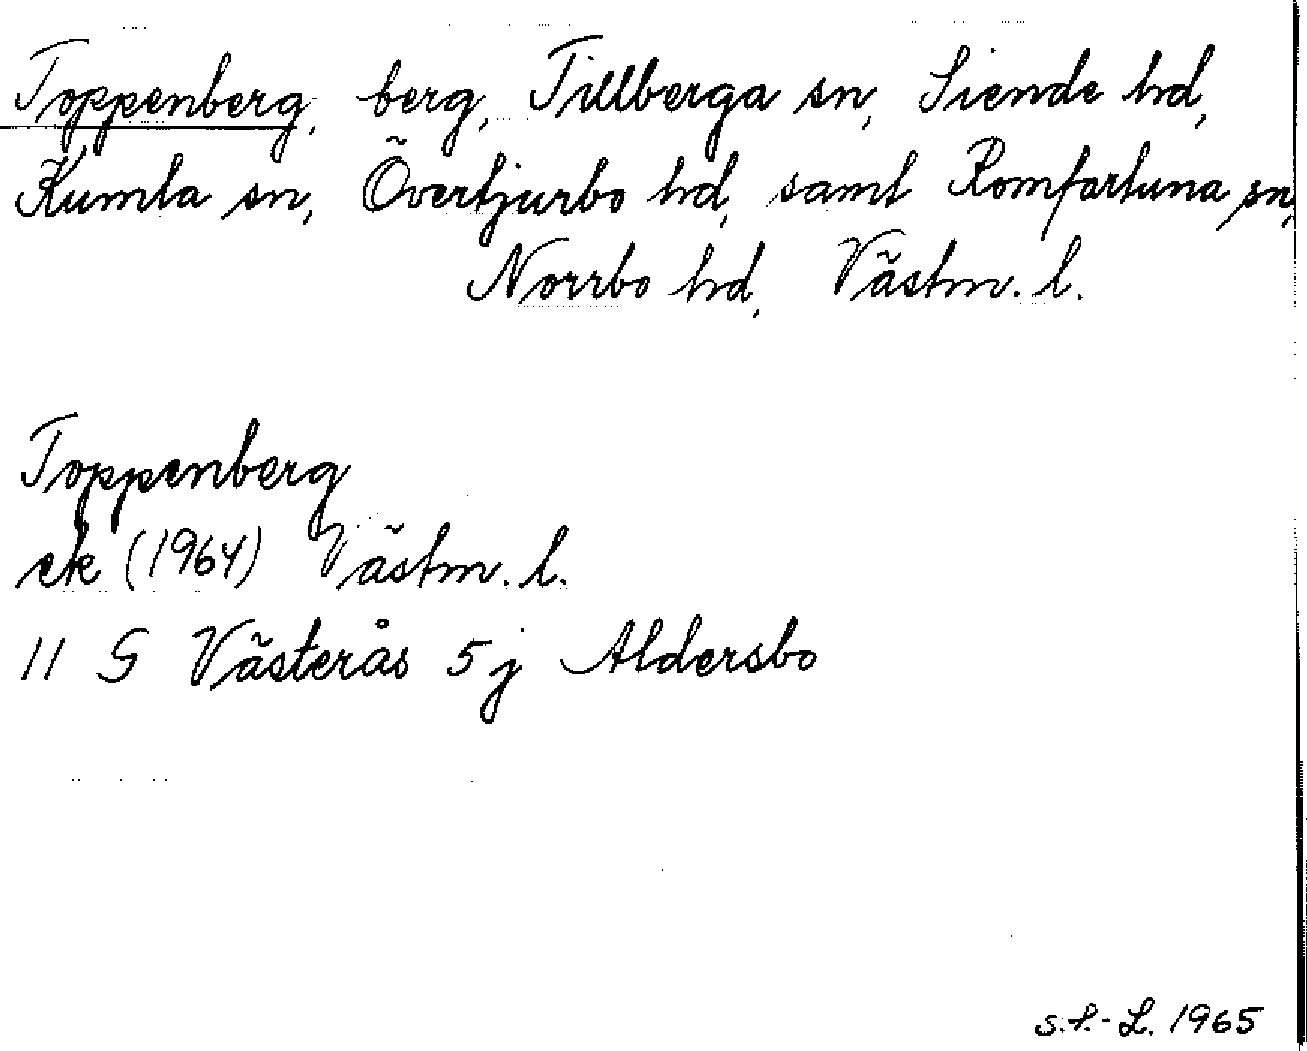 Toppenberg, berg, Tillberga sn, Siende hd,
Kumla sn, Övertjurbo hd, samt Romfartuna sn,
Norrbo hd, Västm. l.
Toppenberg
ek (1964) Västm. l.
11 G Västerås 5 j Aldersbo
1965